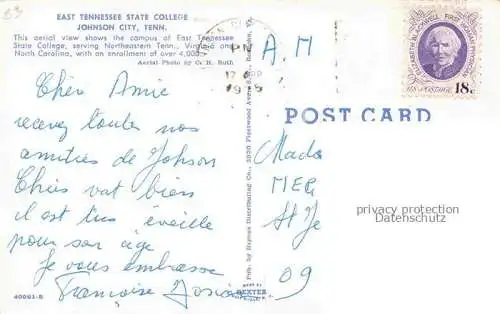 EAST TENNESSEE STATE COLLEGE
JOHNSON CITY, TENN.
This aerial view shows the campus of East Tennessee
State College, serving Northeastern Tenn., Virginia and
North Carolina, with an enrollment of over 4,000.
Aerial Photo by
Cher Amie
recevez toutes nos
amitiés de Johson
vat bien
il est très éveillé
pour son age
Je vous embrasse
Françoise
40063-B
PM
A.M
ELIZABETH BLACKWELL FIRST WOMAN PHYSICIAN
US POSTAGE 18c
POST CARD
Mada
MER
St Je
09
privacy protection
Datenschutz
Pub. by Haynes Distributing Co., 3330 Fleetwood Ave.
DEXTER